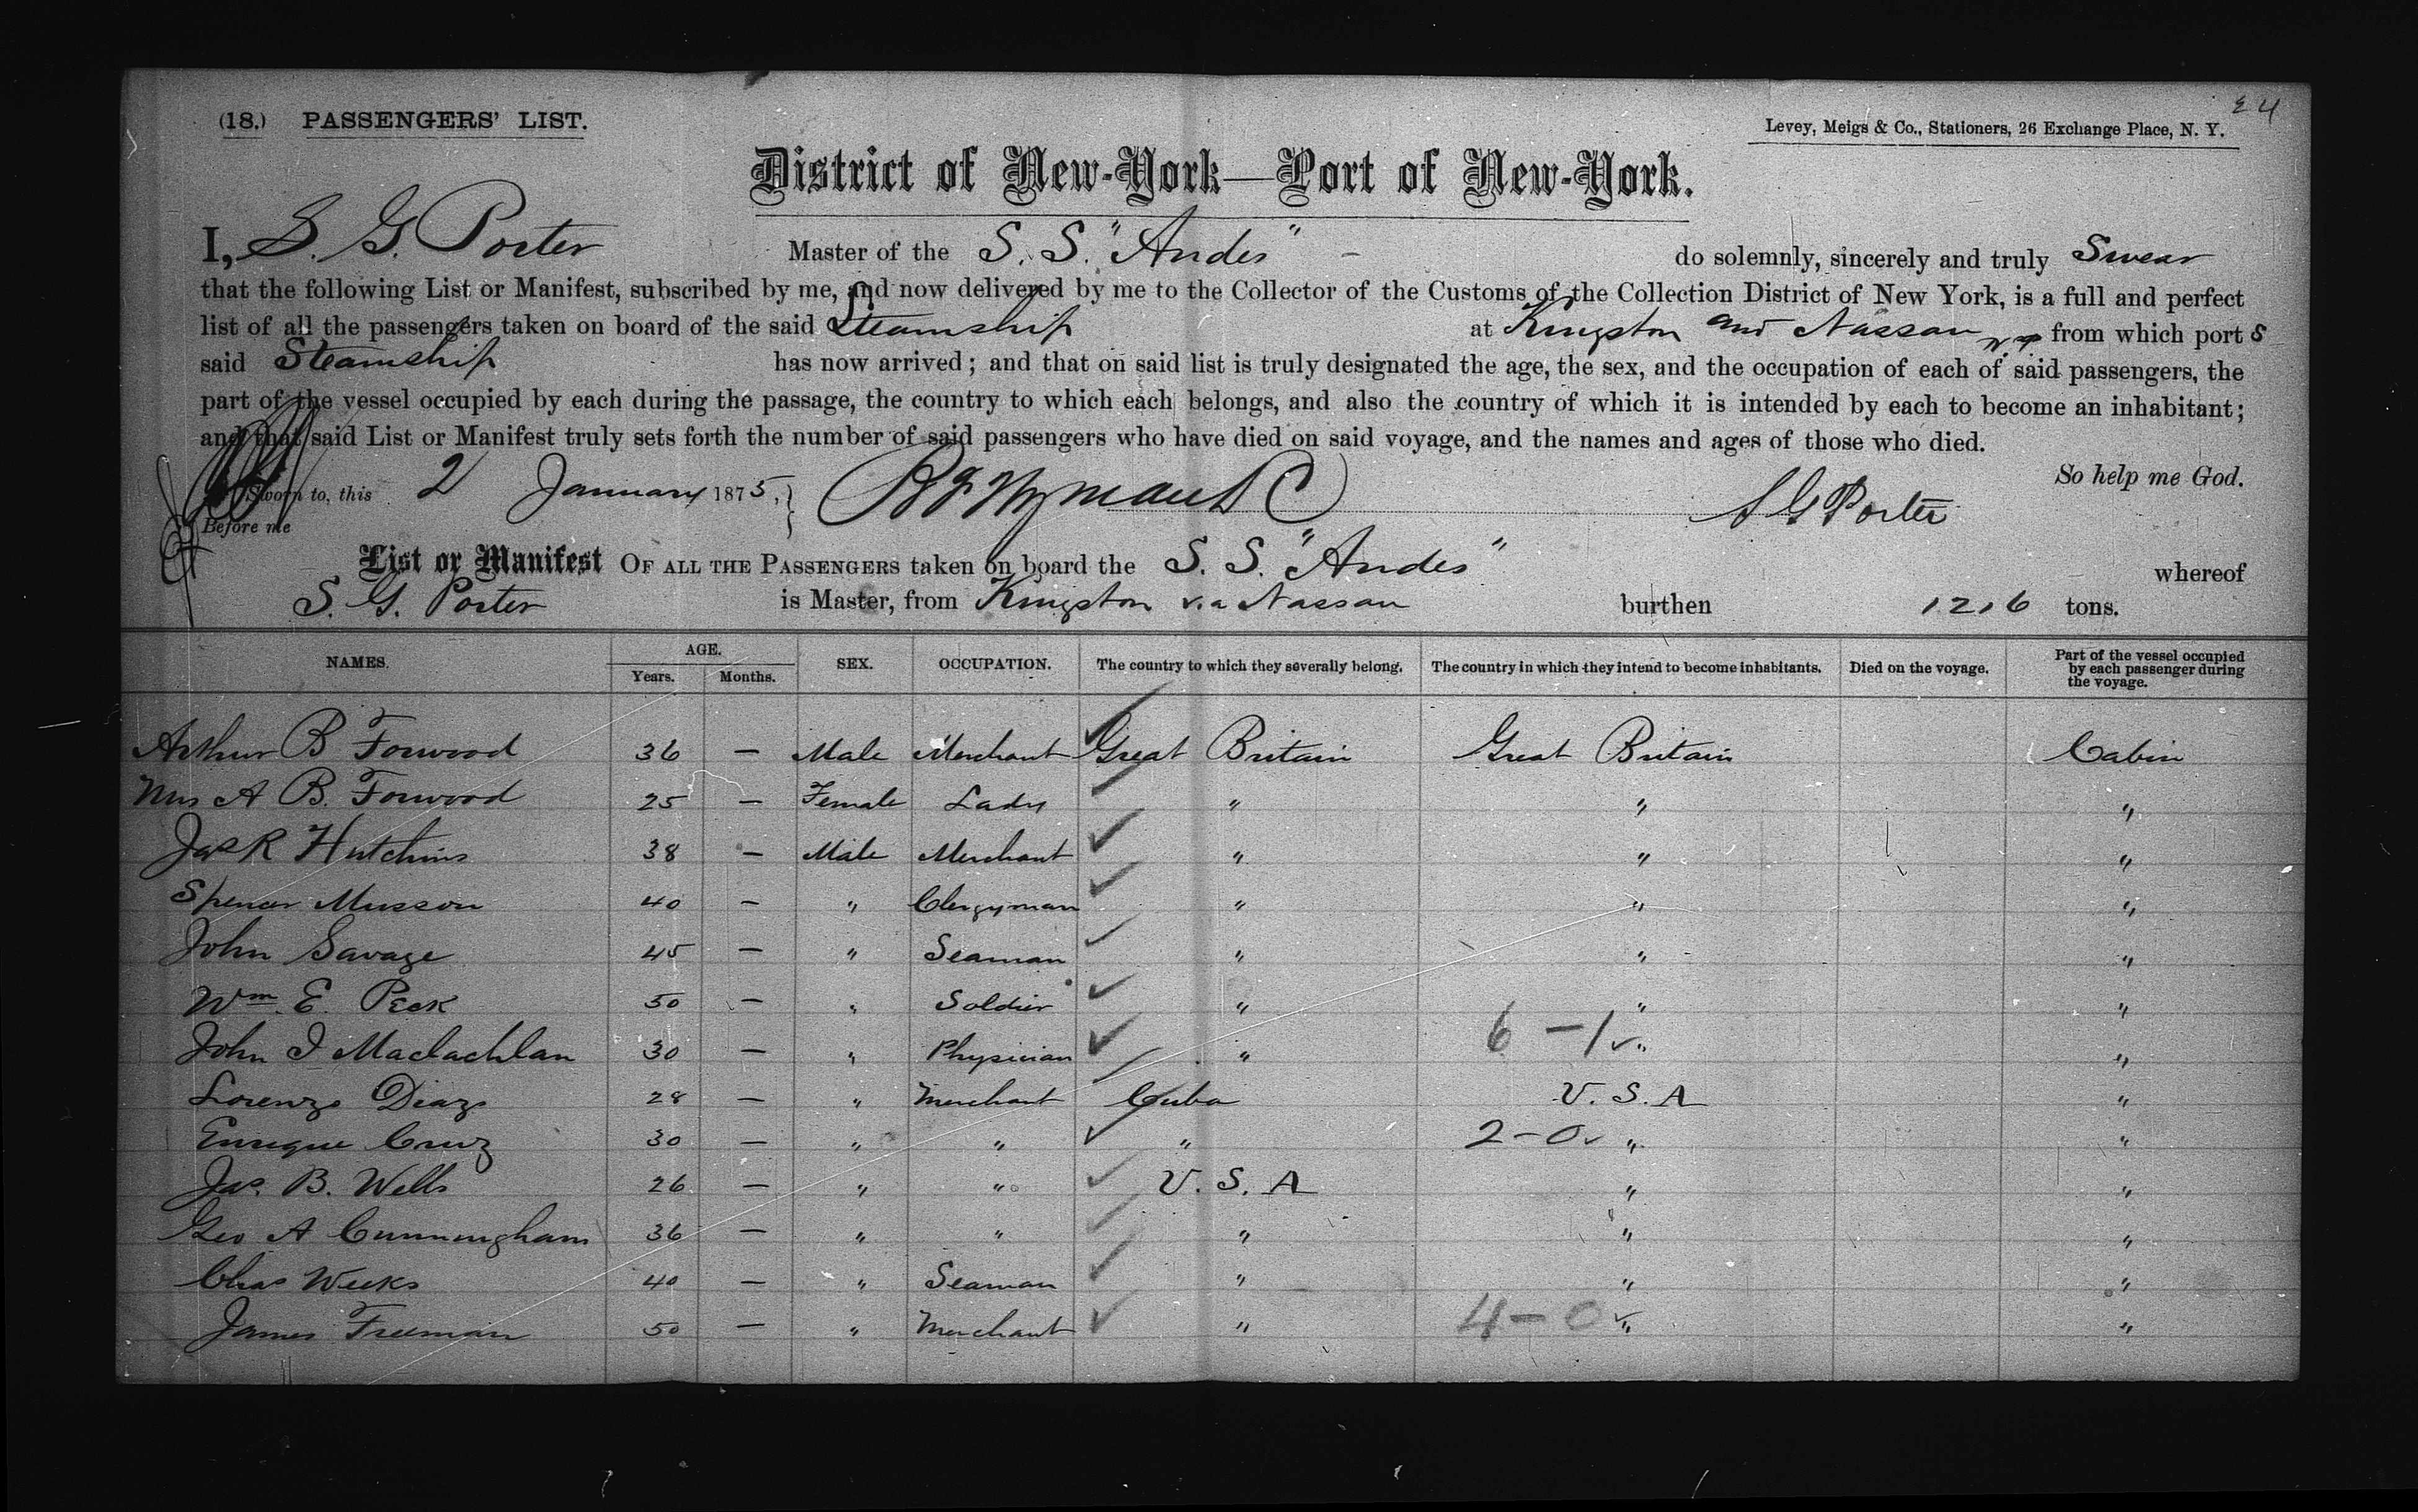 24
(18.) PASSENGERS' LIST.
Levey, Meigs & Co., Stationers, 26 Exchange Place, N. Y.
District of New-York—Port of New-York.
I, S. G. Porter Master of the S. S. "Andes" - do solemnly, sincerely and truly Swear
that the following List or Manifest, subscribed by me, and now delivered by me to the Collector of the Customs of the Collection District of New York, is a full and perfect
list of all the passengers taken on board of the said Steamship at Kingston and Nassau N.P from which port s
said Steamship has now arrived; and that on said list is truly designated the age, the sex, and the occupation of each of said passengers, the
part of the vessel occupied by each during the passage, the country to which each belongs, and also the country of which it is intended by each to become an inhabitant;
and that said List or Manifest truly sets forth the number of said passengers who have died on said voyage, and the names and ages of those who died.
So help me God.
Sworn to, this 2 January 1875, S G Porter
Before me
List or Manifest OF ALL THE PASSENGERS taken on board the S. S. "Andes" whereof
S. G. Porter is Master, from Kingston via Nassau burthen 1216 tons.
NAMES. AGE. Years. Months. SEX. OCCUPATION. The country to which they severally belong. The country in which they intend to become inhabitants. Died on the voyage. Part of the vessel occupied by each passenger during the voyage.
Arthur B Forwood 36 — Male Merchant Great Britain Great Britain Cabin
Mrs A B. Forwood 25 — Female Lady " " "
Jas R Hutchins 38 — Male Merchant " " "
Spencer Musson 40 — " Clergyman " " "
John Savage 45 — " Seaman " " "
Wm. E. Peck 50 — " Soldier " " "
John I Maclachlan 30 — " Physician " 6 - 1 ✓ " "
Lorenzo Diaz 28 — " Merchant Cuba U. S. A "
Enrique Cruz 30 — " " " 2 - 0 ✓ " "
Jas. B. Wells 26 — " " U. S. A " "
Geo A Cunningham 36 — " " " " "
Chas Weeks 40 — " Seaman " " "
James Freeman 50 — " Merchant " 4 - 0 ✓ " "